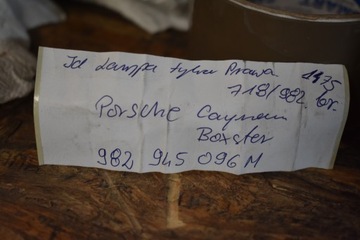 Lampa tylna Prawa 1475
718/982 or.
Porsche Cayman
Boxster
982 945 096 M